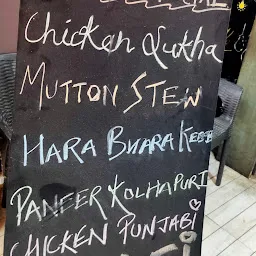 Chicken Sukha
MUTTON STEW
HARA BHARA KEBE
PANEER KOLHAPURI
CHICKEN PUNJABI